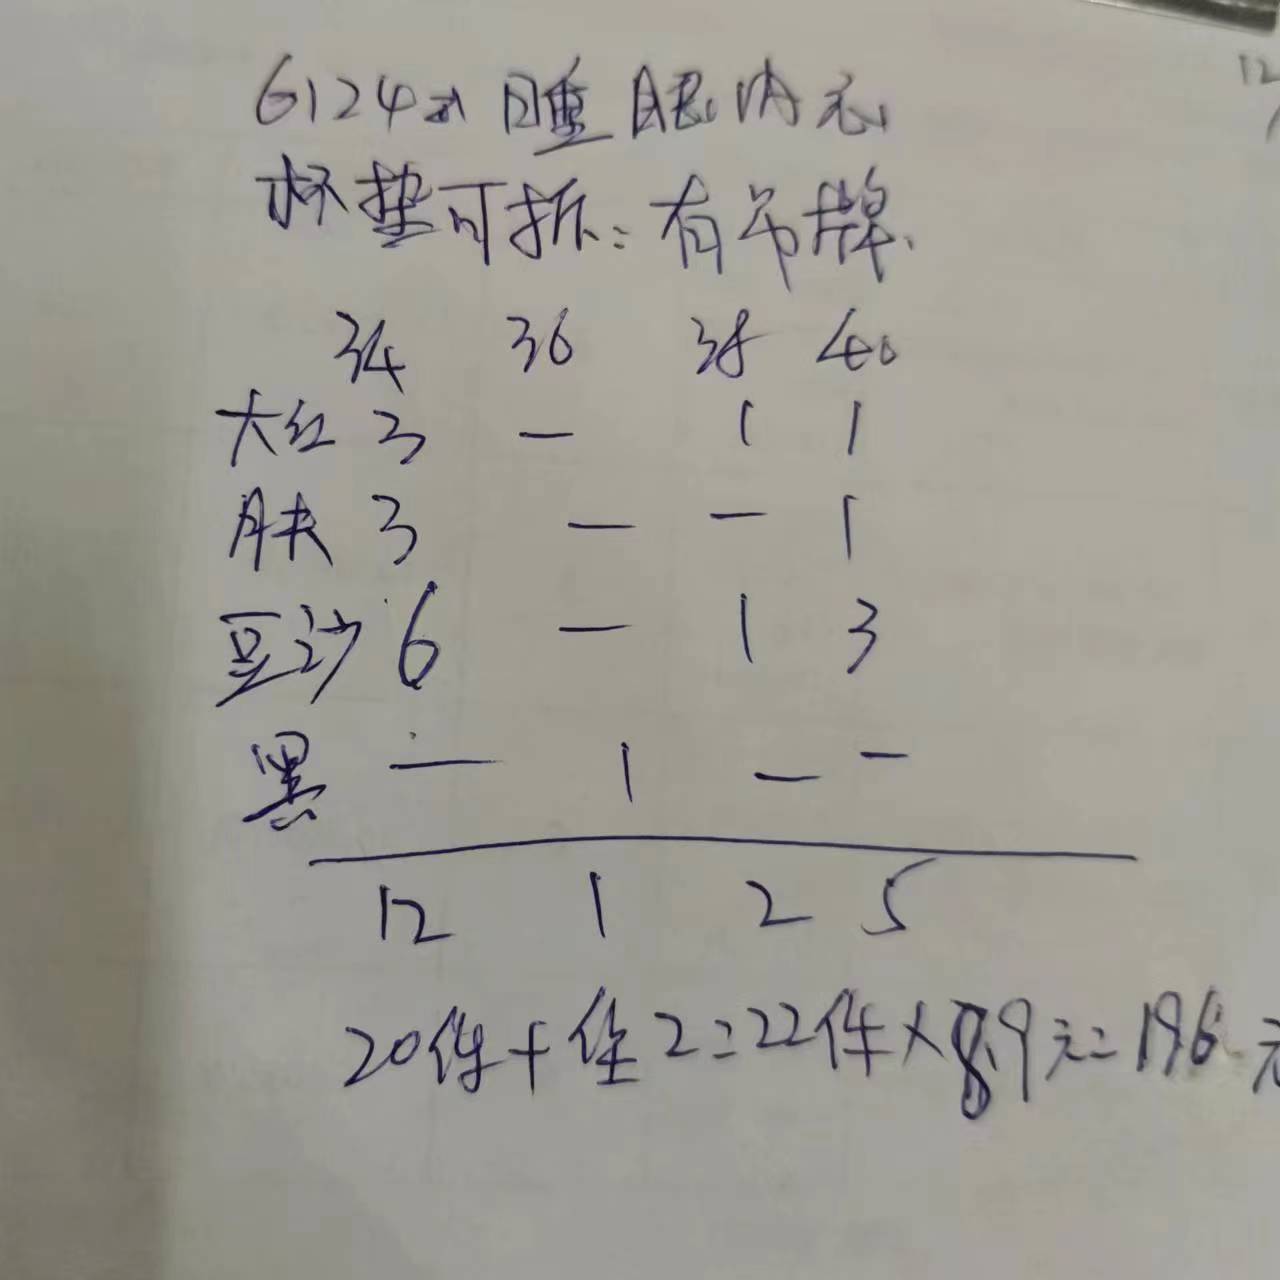 6124# 睡眠内衣
杯垫可拆：有吊牌.
34 36 38 40
大红 3 — 1 1
肤 3 — — 1
豆沙 6 — 1 3
黑 — 1 — —
12 1 2 5
20件+ 2=22件×8.9元=196元
12